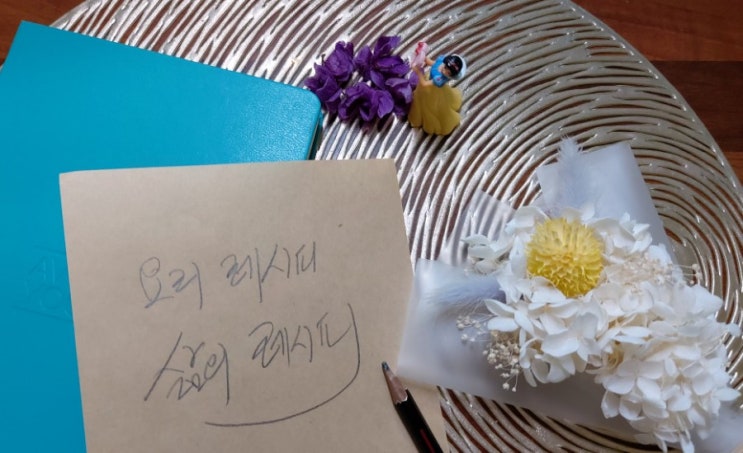 요리 레시피
삶의 레시피